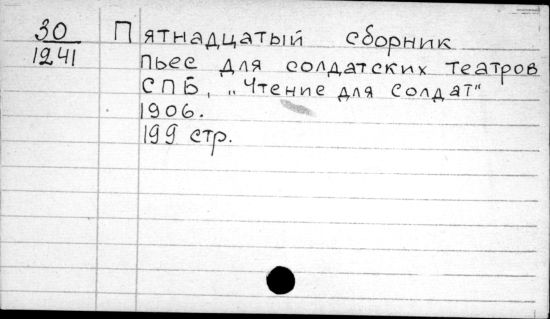 30 Пятнадцатый сборник
1241 пьес для солдатских театров
СПБ, „Чтение для солдат"
1906.
199 стр.